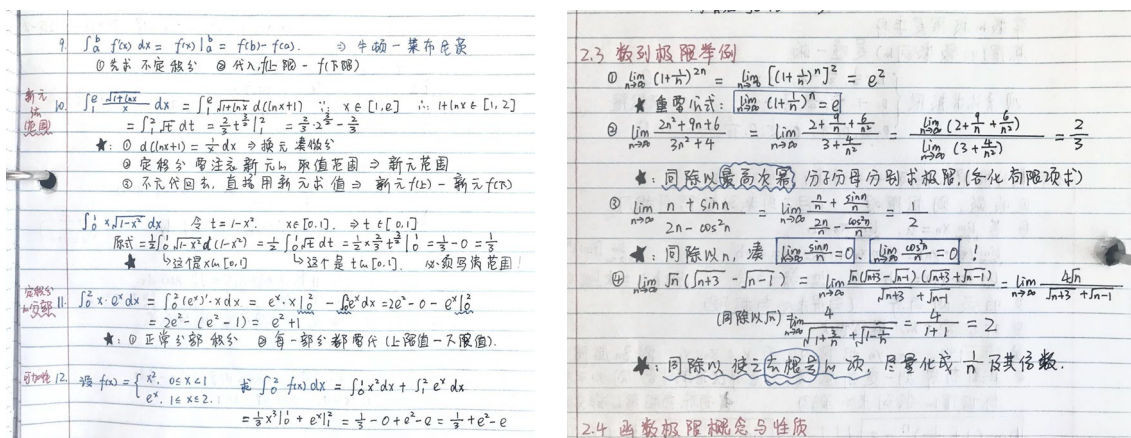 9. ∫ₐᵇ f'(x) dx = f(x)|ₐᵇ = f(b)-f(a). ⇒ 牛顿-莱布尼茨
① 先求 不定积分 ② 代入,f(上限) - f(下限)
新元
范围
10. ∫₁ᵉ √(1+lnx)/x dx = ∫₁ᵉ √(1+lnx) d(lnx+1) ∵ x∈[1,e] ∴ 1+lnx∈[1,2]
= ∫₁² √t dt = 2/3 t^(3/2)|₁² = 2/3·2^(3/2) - 2/3
★: ① d(lnx+1) = 1/x dx ⇒ 换元 凑微分
② 定积分 需注意 新元的 取值范围 ⇒ 新元范围
③ 不元代回去, 直接用新元求值 ⇒ 新元f(上) - 新元f(下)
∫₀¹ x√(1-x²) dx 令 t=1-x². x∈[0,1]. ⇒ t∈[0,1]
原式 = 1/2∫₀¹ √(1-x²) d(1-x²) = 1/2 ∫₀¹ √t dt = 1/2 × 2/3 t^(3/2)|₀¹ = 1/3 - 0 = 1/3
★ ↳这个是x的[0,1] ↳这个是t的[0,1]. 必须写清范围!
定积分
的分部
11. ∫₀² x·eˣ dx = ∫₀² (eˣ)'·x dx = eˣ·x|₀² - ∫₀² eˣ dx = 2e² - 0 - eˣ|₀²
= 2e² - (e²-1) = e²+1
★: ① 正常分部积分 ② 每一部分都需代(上限值-下限值).
可加性
12. 设 f(x) = { x², 0≤x<1 求 ∫₀² f(x) dx = ∫₀¹ x² dx + ∫₁² eˣ dx
eˣ, 1≤x≤2.
= 1/3 x³|₀¹ + eˣ|₁² = 1/3 - 0 + e² - e = 1/3 + e² - e
2.3 数列极限举例
① lim n→∞ (1+1/n)²ⁿ = lim n→∞ [(1+1/n)ⁿ]² = e²
★ 重要公式: lim n→∞ (1+1/n)ⁿ = e
② lim n→∞ (2n²+9n+6)/(3n²+4) = lim n→∞ (2+9/n+6/n²)/(3+4/n²) = lim n→∞ (2+9/n+6/n²) / lim n→∞ (3+4/n²) = 2/3
★: 同除以最高次幂, 分子分母分别求极限,(各化有限项求)
③ lim n→∞ (n+sinn)/(2n-cos²n) = lim n→∞ (n/n + sinn/n)/(2n/n - cos²n/n) = 1/2
★: 同除以n, 凑 lim n→∞ sinn/n = 0. lim n→∞ cos²n/n = 0 !
④ lim n→∞ √n (√(n+3) - √(n-1)) = lim n→∞ √n(√(n+3)-√(n-1))(√(n+3)+√(n-1)) / (√(n+3)+√(n-1)) = lim n→∞ 4√n/(√(n+3)+√(n-1))
(同除以√n) = lim n→∞ 4/(√(1+3/n)+√(1-1/n)) = 4/(1+1) = 2
★: 同除以 使之去根号的项, 尽量化成 1/n 及其倍数.
2.4 函数极限概念与性质